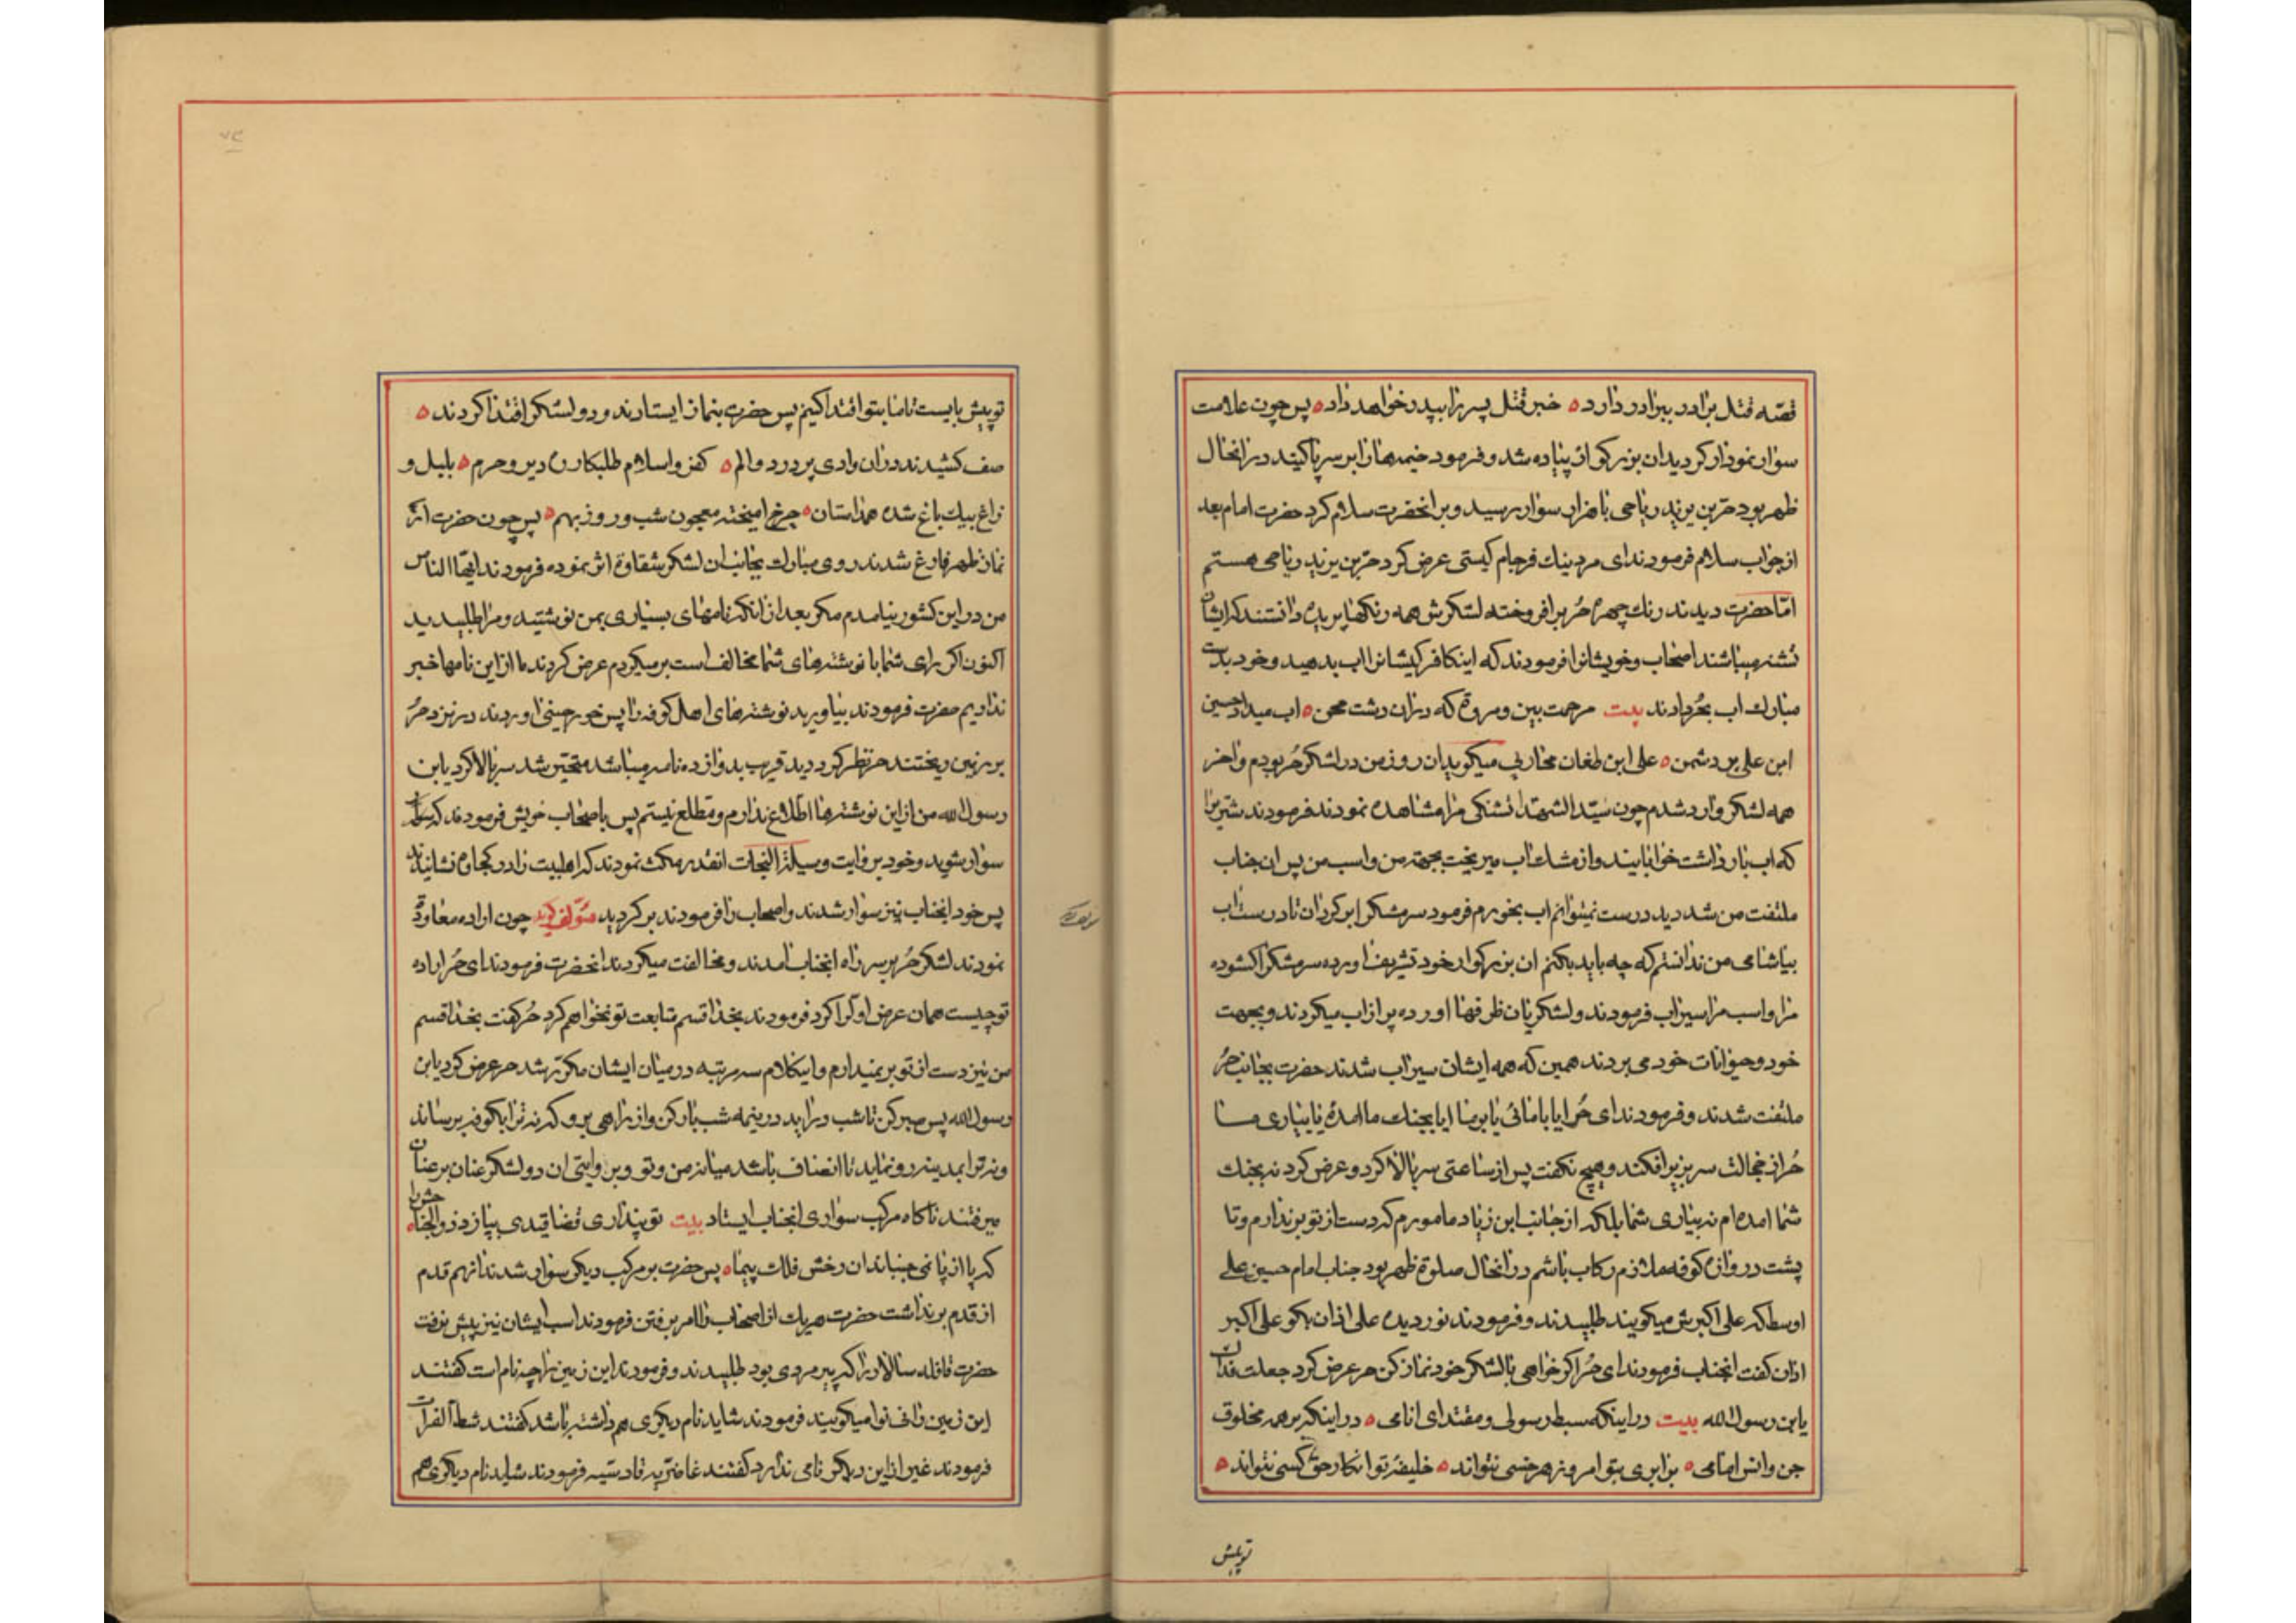 قصّه قتل برادر ببرادر دارد ه خبر قتل پسر را بپدر خواهد داد ه پس چون علامت
سوار نمودار کردید ان بزرکوار پیاده شد و فرمود خیمه‌ها را بر سر پا کنید در انحال
ظهر بود حر بن یزید ریاحی با هزار سوار رسید و بر انحضرت سلام کرد حضرت امام بعد
از جواب سلام فرمودند ای مرد نیك فرجام کیستی عرض کرد حر بن یزید ریاحی هستم
امّا حضرت دیدند رنك چهرهٔ حُر بر افروخته لشکرش همه رنکها پریده دانستند که ایشان
تشنه میباشند اصحاب و خویشانرا فرمودند که اینکافر کیشانرا اب بدهید و خود بدست
مبارك اب بحُر دادند بیت مرحمت بین و مروة که در ان دشت محن ه اب میداد حسین
ابن علی بر دشمن ه علی ابن طغان محاربی میکوید ان روز من در لشکر حُر بودم و اخر
همه لشکر وارد شدم چون سیّد الشهدا تشنکی مرا مشاهده نمودند فرمودند شتر را
که اب بار داشت خوابانیدند و از مشك اب میریخت بجهة من و اسب من پس ان جناب
ملتفت من شد دید درست نمیتوانم اب بخورم فرمود سر مشك را بر کردان تا درست اب
بیاشامی من ندانستم که چه باید بکنم ان بزرکوار خود تشریف اورده سر مشك را کشوده
مرا و اسب مرا سیراب فرمودند و لشکریان ظرفها اورده پر از اب میکردند و بجهت
خود و حیوانات خود می بردند همین که همه ایشان سیراب شدند حضرت بجانب حُر
ملتفت شدند و فرمودند ای حُر ایا با مائی یا بر ما ایا بجنك ما امدهٔ یا بیاری مــا
حُر از خجالت سر بزیر افکند و هیچ نکفت پس از ساعتی سر بالا کرد و عرض کرد نه بجنك
شما امده‌ام نه بیاری شما بلکه از جانب ابن زیاد مامورم که دست از تو بر ندارم و تا
پشت دروازه کوفه ملازم رکاب باشم در انحال صلوة ظهر بود جناب امام حسین علی
اوسط که علی اکبرش میکویند طلبیدند و فرمودند نور دیده علی اذان بکو علی اکبر
اذان کفت انجناب فرمودند ای حُر اکر خواهی با لشکر خود نماز کن حر عرض کرد جعلت فداك
یابن رسول الله بیت در اینکه سبط رسولی و مقتدای انامی ه در اینکه بر همه مخلوق
جن و انس امامی ه برابری بتو امروز هر خسی نتواند ه خلیفهٔ تو انکار حق کسی نتواند ه
تو پیش
تو پیش بایست تا ما بتو اقتدا کنیم پس حضرت بنماز ایستادند و دو لشکر اقتدا کردند ه
صف کشیدند در ان وادی پر درد و الم ه کفر و اسلام طلبکار دیر و حرم ه بلبل و
زاغ بیك باغ شده همداستان ه چرخ امیخته معجون شب و روز بهم ه پس چون حضرت از
نماز ظهر فارغ شدند روی مبارك بجانب ان لشکر شقاوة اثر نموده فرمودند ایّها الناس
من در این کشور نیامدم مکر بعد از انکه نامهای بسیاری بمن نوشتید و مرا طلبیدید
اکنون اکر رای شما با نوشته‌های شما مخالف است بر میکردم عرض کردند ما از این نامها خبر
نداریم حضرت فرمودند بیاورید نوشته‌های اهل کوفه را پس خورجینی اوردند در نزد حُر
بر زمین ریختند حر نظر کرد دید قریب بدوازده نامه میباشد متحیّر شد سر بالا کرد یابن
رسول الله من از این نوشته‌ها اطلاع ندارم و مطلع نیستم پس باصحاب خویش فرمودند که
سوار شوید و خود بروایت وسیلة النجات انقدر مکث نمودند که اهلبیت را در کجاوه نشانیدند
پس خود انجناب نیز سوار شدند و اصحاب را فرمودند بر کردید مؤلف کوید چون اراده معاودة
نمودند لشکر حُر بر سر راه انجناب امدند و مخالفت میکردند انحضرت فرمودند ای حُر اراده
تو چیست همان عرض اول را کرد فرمودند بخدا قسم متابعت تو نخواهم کرد حُر کفت بخدا قسم
من نیز دست از تو بر نمیدارم و اینکلام سه مرتبه در میان ایشان مکرّر شد حر عرض کرد یابن
رسول الله پس صبر کن تا شب در اید در نیمه شب بار کن و از راهی برو که نه ترا بکوفه برساند
و نه ترا بمدینه رو نماید تا انصاف باشد میانه من و تو و بروایتی ان دو لشکر عنان بر عنان
میرفتند ناکاه مرکب سواری انجناب ایستاد بیت تو پنداری قضا قیدی بپا زد ذوالجناحش را ه
که پا از پا نمی جنباند ان رخش فلك پیما ه پس حضرت بر مرکب دیکر سوار شدند انهم قدم
از قدم بر نداشت حضرت هر یك از اصحاب را امر برفتن فرمودند اسب ایشان نیز پیش نرفت
حضرت قافله سالار را که پیر مردی بود طلبیدند و فرمودند این زمین را چه نام است کفتنــد
این زمین را نینوا میکویند فرمودند شاید نام دیکری هم داشته باشد کفتند شط الفرات
فرمودند غیر از این دیکر نامی ندارد کفتند غاضریّه قادسیّه فرمودند شاید نام دیکری هم